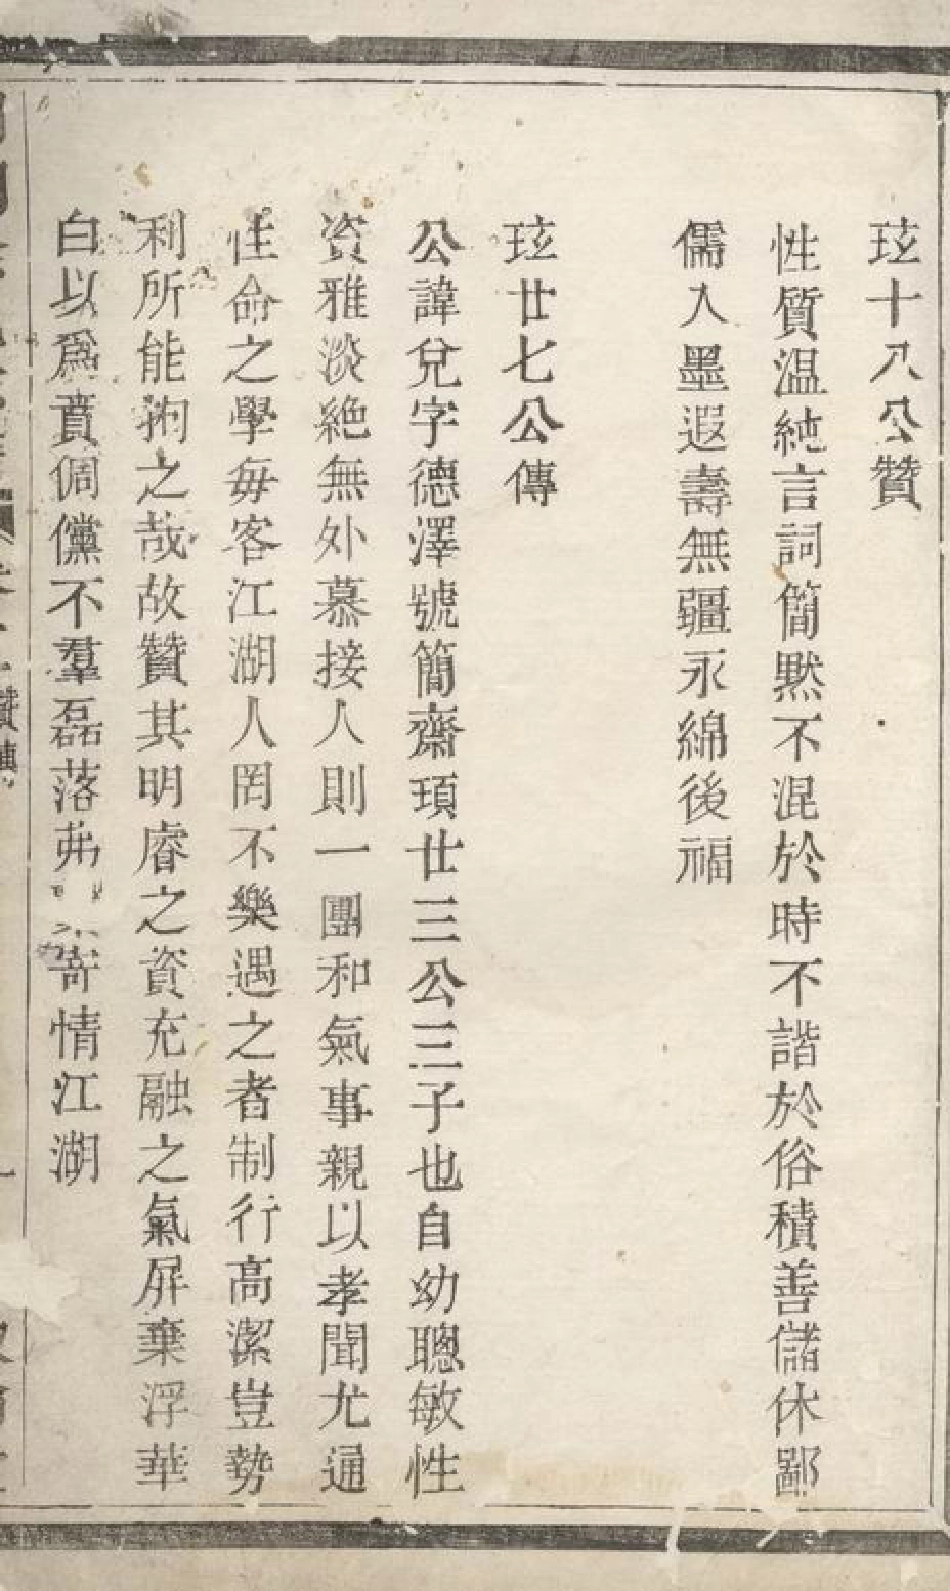 玹十八公贊
性質温純言詞簡黙不混於時不諧於俗積善儲休鄙
儒入墨遐壽無疆永綿後福
玹廿七公傳
公諱兌字德澤號簡齋頊廿三公三子也自幼聰敏性
資雅淡絕無外慕接人則一團和氣事親以孝聞尤通
性命之學每客江湖人罔不樂遇之者制行高潔豈勢
利所能拘之哉故贊其明睿之資充融之氣屏棄浮華
白以爲賁倜儻不羣磊落弗寄情江湖
贊傳